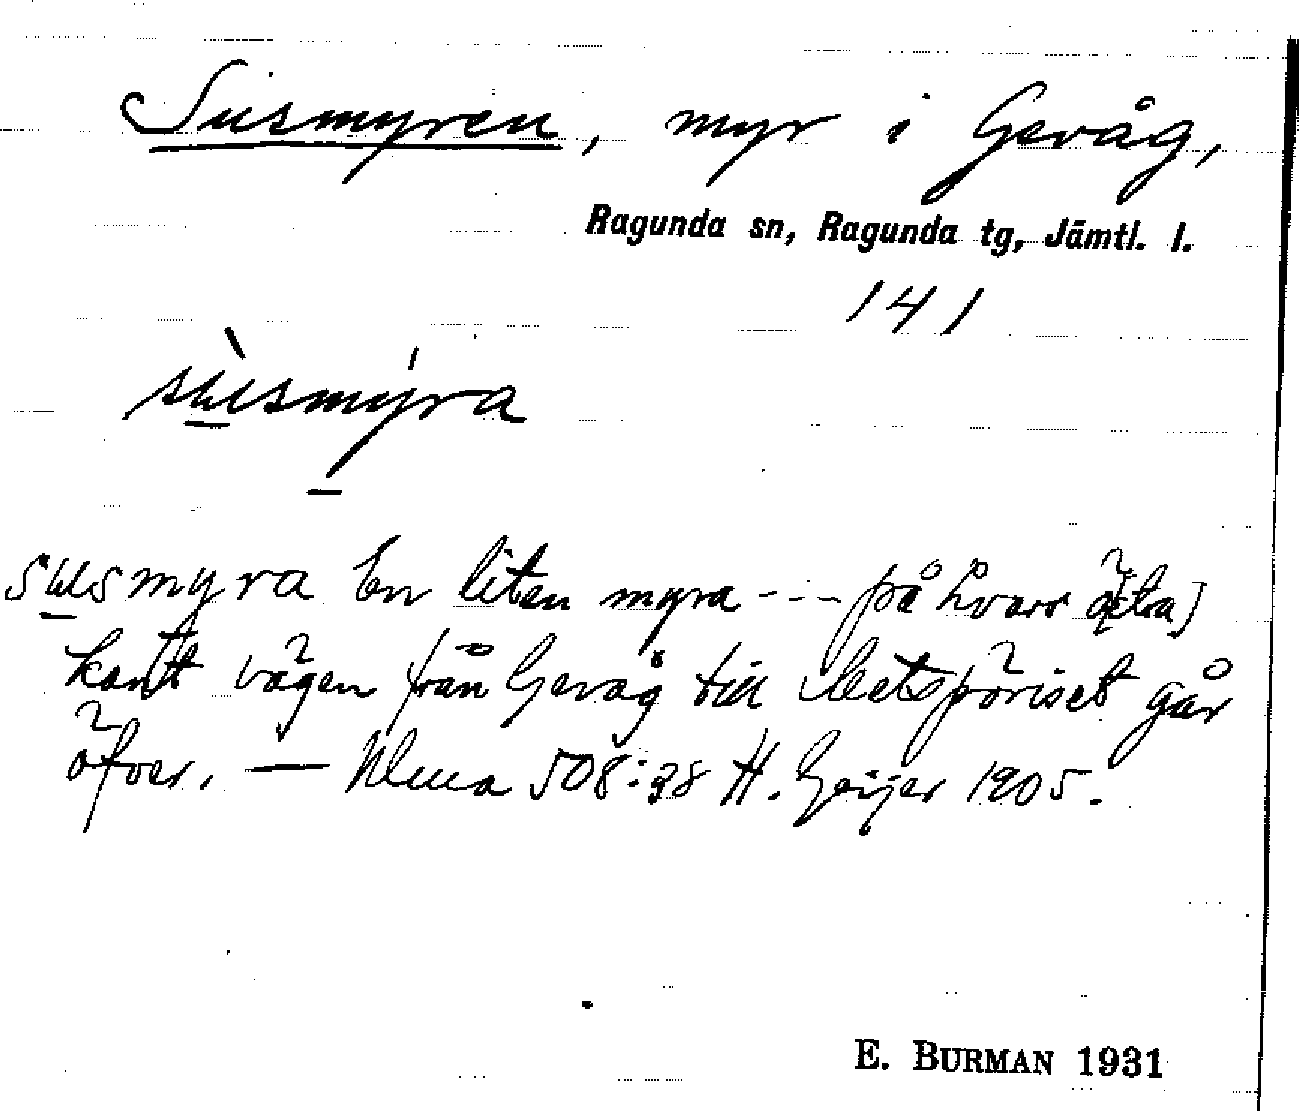 Susmyren, myr i Gevåg,
Ragunda sn, Ragunda tg, Jämtl. l.
141
sùsmýra
susmyra En liten myra --- på hvars östra]
kant vägen från Gevåg till går
öfver. — Ulma 508:38 H. Geijer 1905.
E. BURMAN 1931